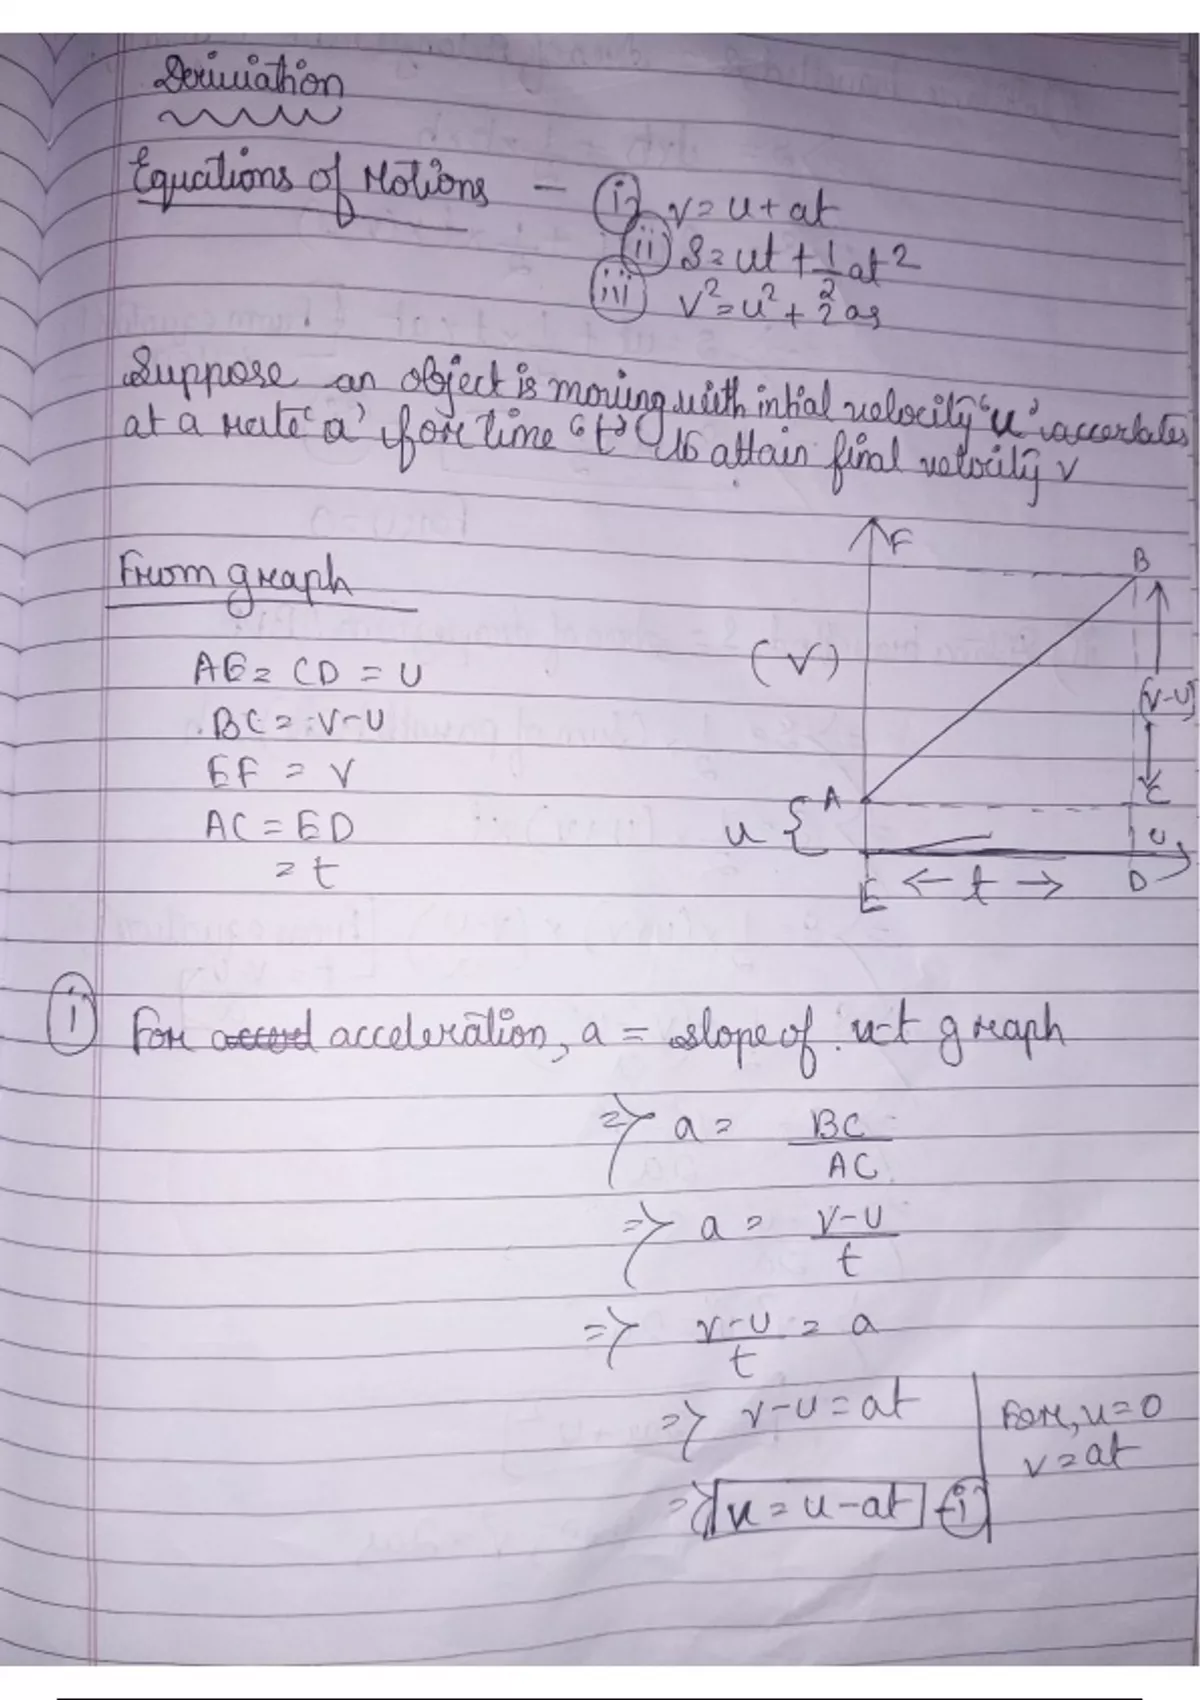 Derivation
Equations of Motions - (i) v = u + at
(ii) S = ut + 1/2 at²
(iii) v² = u² + 2as
Suppose an object is moving with intial velocity 'u' accerlates
at a rate 'a' for time 't' to attain final velocity v
From graph
AE = CD = U
BC = V-U
EF = V
AC = ED
= t
F
B
(V)
(V-U)
A
C
u {
U
E ← t → D
(i) For acceleration, a = slope of u-t graph
=> a = BC/AC
=> a = V-U/t
=> V-U/t = a
=> v-u = at
For, u = 0
v = at
=> u = u-at -(i)